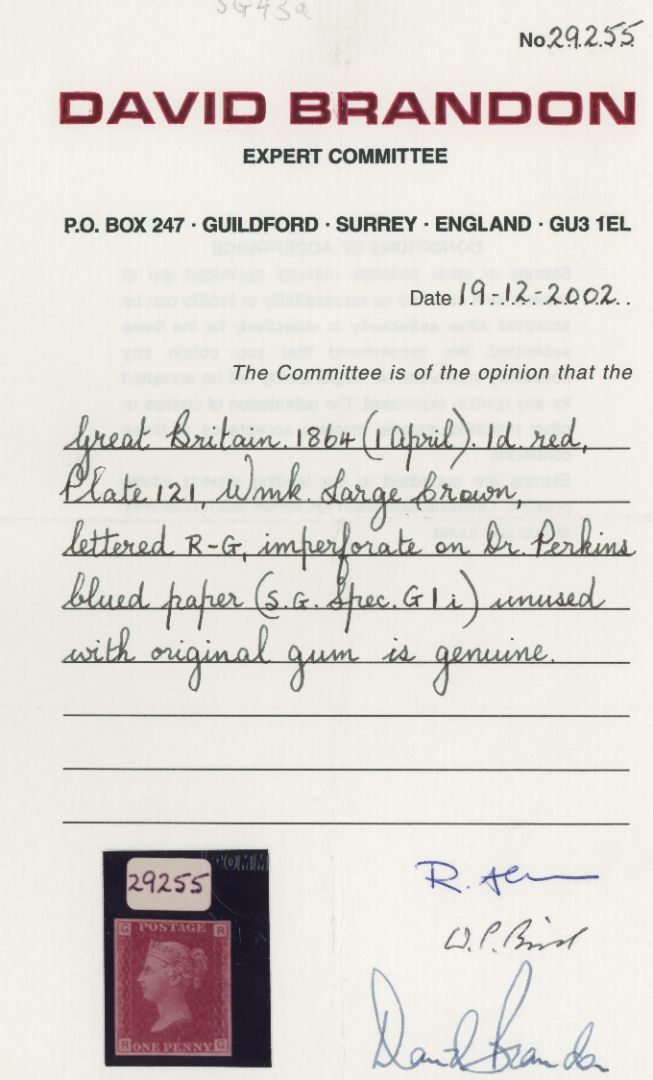 SG43a
No 29255
DAVID BRANDON
EXPERT COMMITTEE
P.O. BOX 247 · GUILDFORD · SURREY · ENGLAND · GU3 1EL
Date 19-12-2002
The Committee is of the opinion that the
Great Britain. 1864 (1 April). 1d. red,
Plate 121, Wmk. Large Crown,
lettered R-G, imperforate on Dr. Perkins
blued paper (S.G. Spec. G1i) unused
with original gum is genuine.
29255
G POSTAGE R
R ONE PENNY G
R.
W.P. Bird
David Brandon